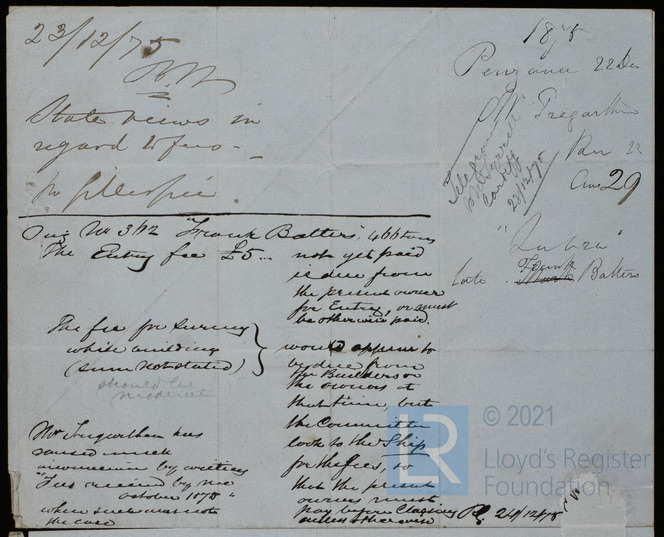 23/12/75
State views in
regard to fees -
Mr Gillespie
Org No 3112 "Frank Batters", 466 tons
The Entry fee £5 ... not yet paid
is due from
the present owner
for Entry, or must
be otherwise paid.
The fee for survey
while building
(sum not stated)
should be
moderate
would appear to
be due from
the Builders or
the owners at
that time, but
the Committee
look to the Ship
for the fees, so
that the present
owners must
pay before Classing
unless otherwise
24/12/75
Mr Tregarthen has
caused much
inconvenience by writing
"Fees received by me
October 1875"
when such was not
the case
1875
Penzance 22 Dec
Tregarthen
Rec 23
Ans 29
Telegram
Cardiff
23/12/75
"Zubra"
late Frank Batters
LR
© 2021
Lloyd's Register
Foundation